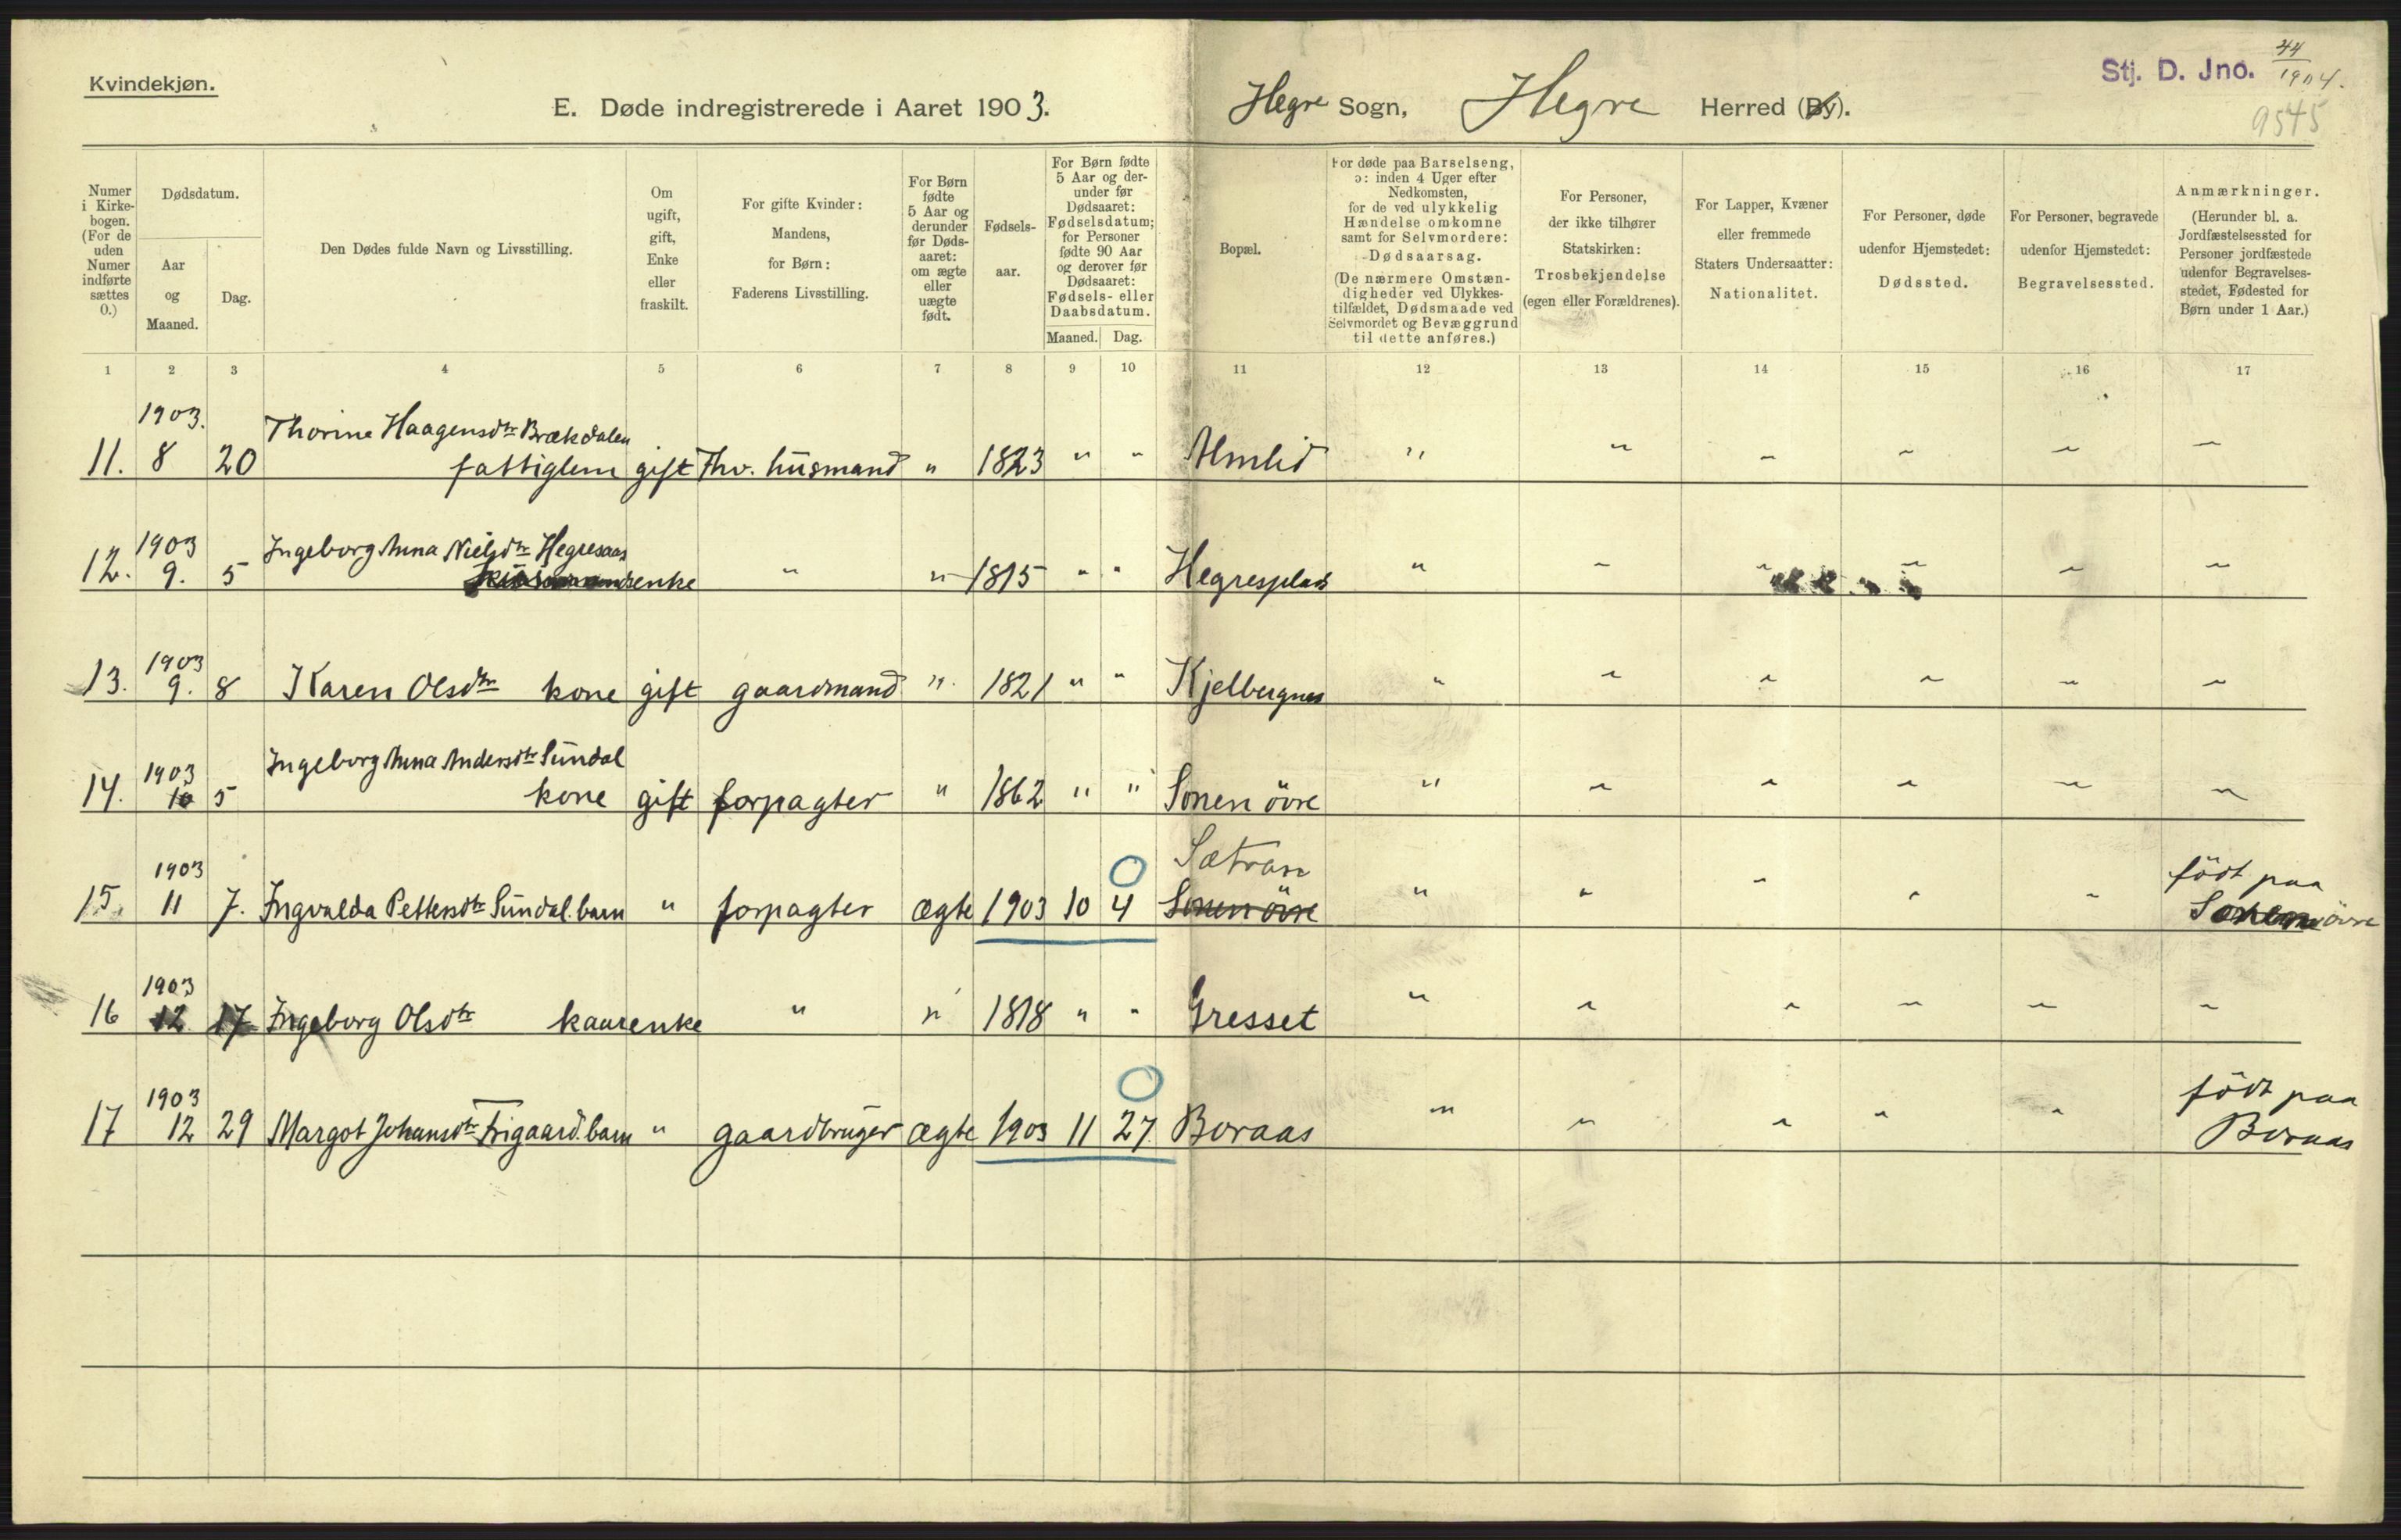 Kvindekjøn.
E. Døde indregistrerede i Aaret 1903.
Hegre Sogn, Hegre Herred (By).
Stj. D. Jno. 44/1904.
9545
Numer i Kirkebogen. (For de uden Numer indførte sættes 0.)
Dødsdatum.
Aar og Maaned.
Dag.
Den Dødes fulde Navn og Livsstilling.
Om ugift, gift, Enke eller fraskilt.
For gifte Kvinder: Mandens, for Børn: Faderens Livsstilling.
For Børn fødte 5 Aar og derunder før Dødsaaret: om ægte eller uægte født.
Fødselsaar.
For Børn fødte 5 Aar og derunder før Dødsaaret: Fødselsdatum; for Personer fødte 90 Aar og derover før Dødsaaret: Fødsels- eller Daabsdatum.
Maaned. Dag.
Bopæl.
For døde paa Barselseng, ɔ: inden 4 Uger efter Nedkomsten, for de ved ulykkelig Hændelse omkomne samt for Selvmordere: Dødsaarsag.
(De nærmere Omstændigheder ved Ulykkestilfældet, Dødsmaade ved Selvmordet og Bevæggrund til dette anføres.)
For Personer, der ikke tilhører Statskirken: Trosbekjendelse (egen eller Forældrenes).
For Lapper, Kvæner eller fremmede Staters Undersaatter: Nationalitet.
For Personer, døde udenfor Hjemstedet: Dødssted.
For Personer, begravede udenfor Hjemstedet: Begravelsessted.
Anmærkninger. (Herunder bl. a. Jordfæstelsessted for Personer jordfæstede udenfor Begravelsesstedet, Fødested for Børn under 1 Aar.)
1 2 3 4 5 6 7 8 9 10 11 12 13 14 15 16 17
1903.
Thorine Haagensdtr Brækdalen
11. 8 20 fattiglem gift Fhv. husmand " 1823 " " Almlid " " " " " "
1903
Ingeborg Anna Nielsdtr Hegresaas
12. 9. 5 enke " " 1815 " " Hegresplads " " " " " "
1903
13. 9. 8 Karen Olsdtr kone gift gaardmand " 1821 " " Kjelbergnes " " " " " "
1903
Ingeborg Anna Andersdtr Sundal
14. 10 5 kone gift forpagter " 1862 " " Sonen övre " " " " " "
1903
Sætran
født paa
15. 11 7. Ingvalda Pettersdtr Sundal. barn " forpagter ægte 1903 10 4 Sonen övre " " " " " Sonen övre
1903
16 12 17 Ingeborg Olsdtr kaarenke " " 1818 " " Gresset " " " " " "
1903
født paa
17 12 29 Margot Johansdtr Trigaard. barn " gaardbruger ægte 1903 11 27. Boraas " " " " " Boraas